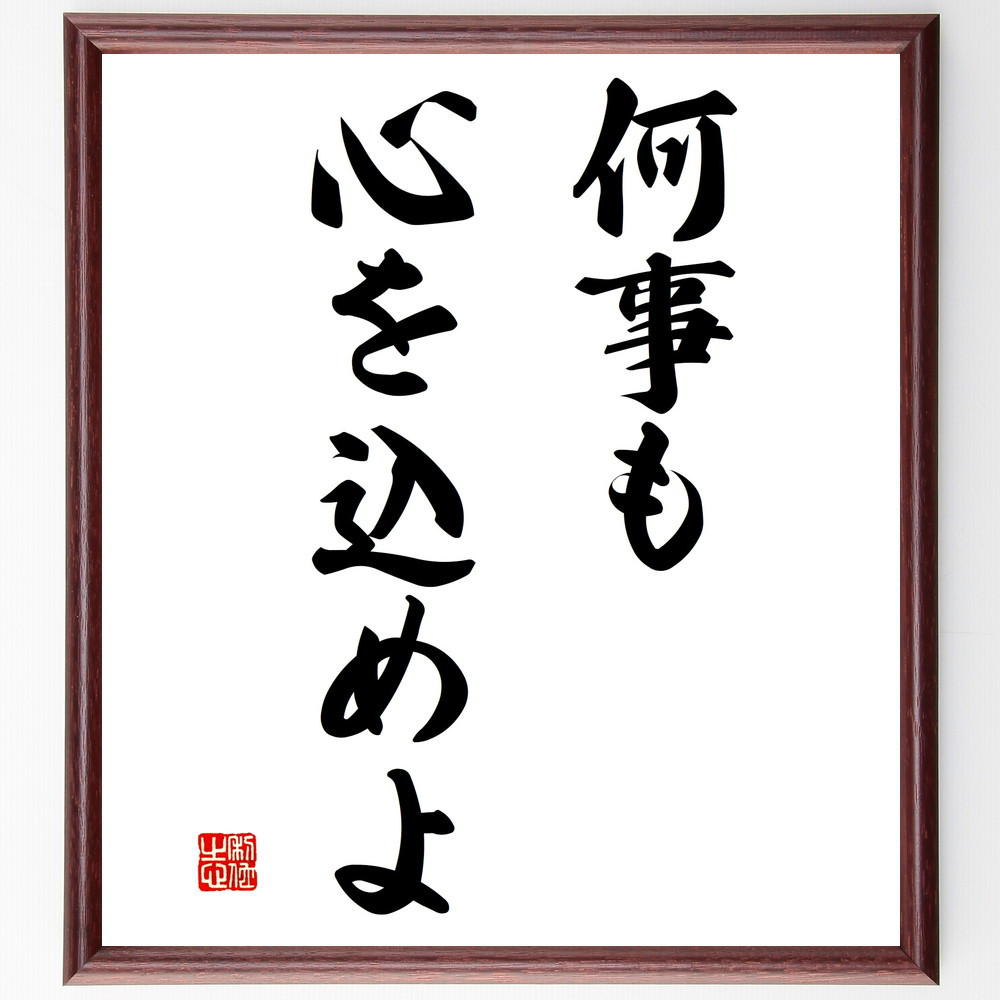 何事も
心を込めよ